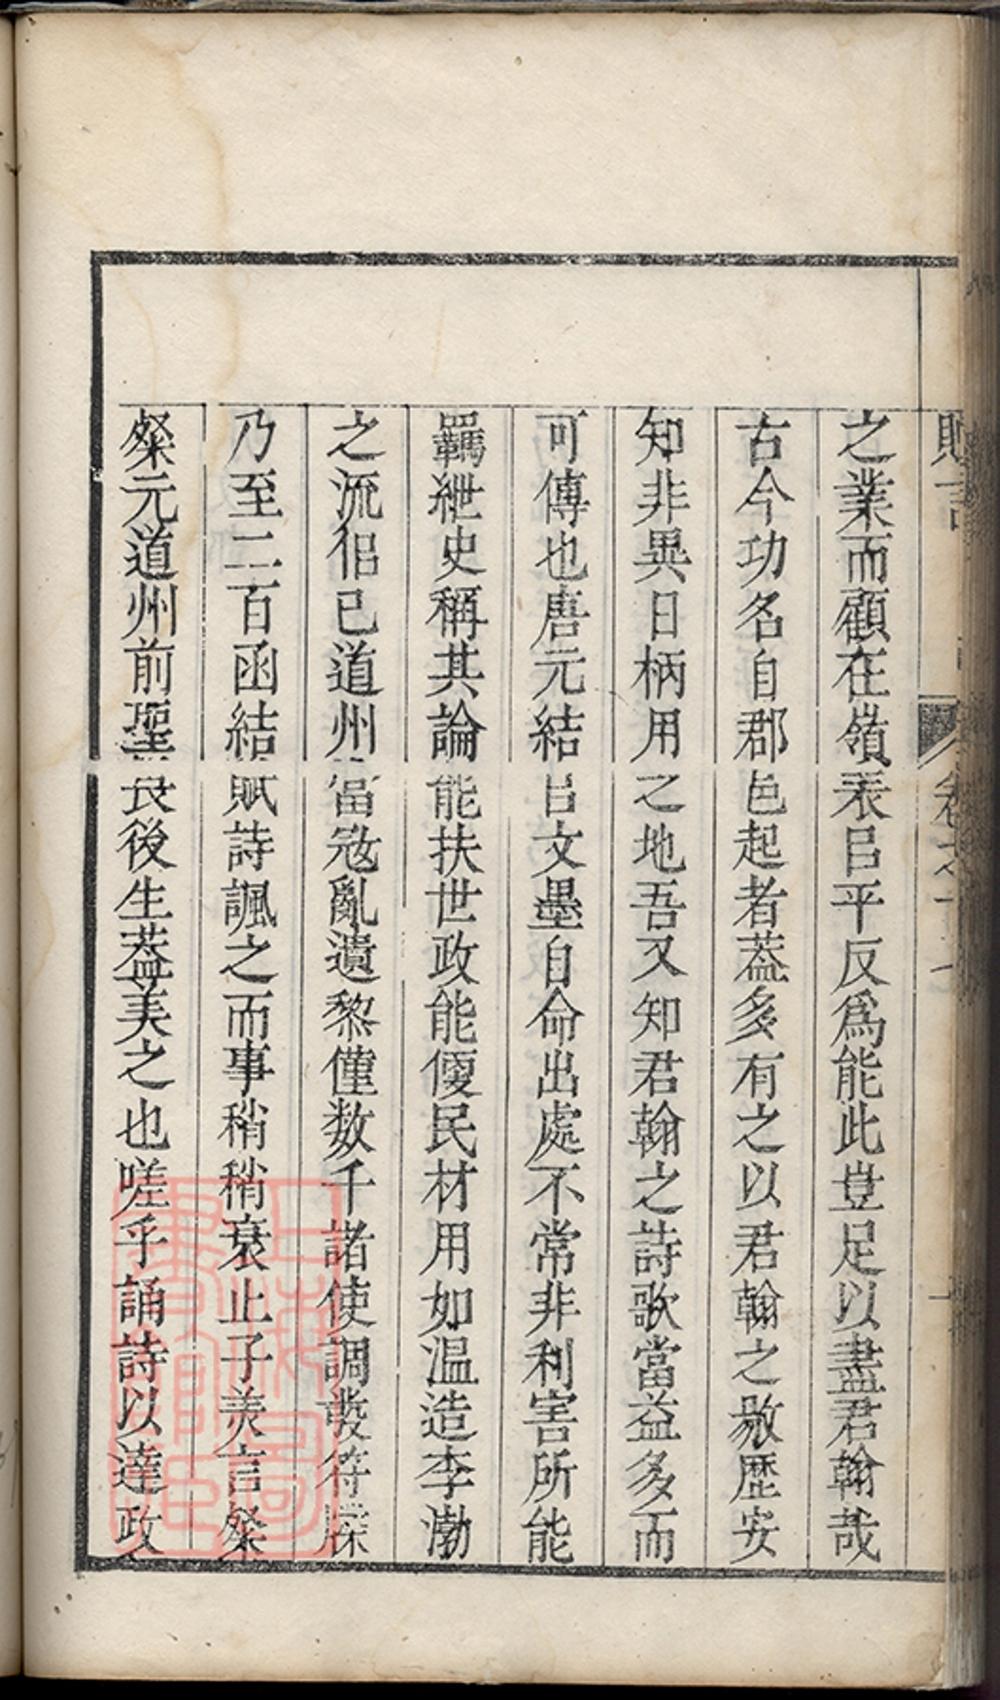 之業而顧在嶺表㠯平反爲能此豈足以盡君翰哉
古今功名自郡邑起者葢多有之以君翰之敭歷安
知非異日柄用之地吾又知君翰之詩歌當益多而
可傳也唐元結㠯文墨自命出處不常非利害所能
羈紲史稱其論能扶世政能㥦民材用如温造李渤
之流佀已道州當寇亂遺黎僅数千諸使調發符牒
乃至二百函結賦詩諷之而事稍稍衰止子羙言粲
粲元道州前聖畏後生葢美之也嗟乎誦詩以達政
上海圖書館藏